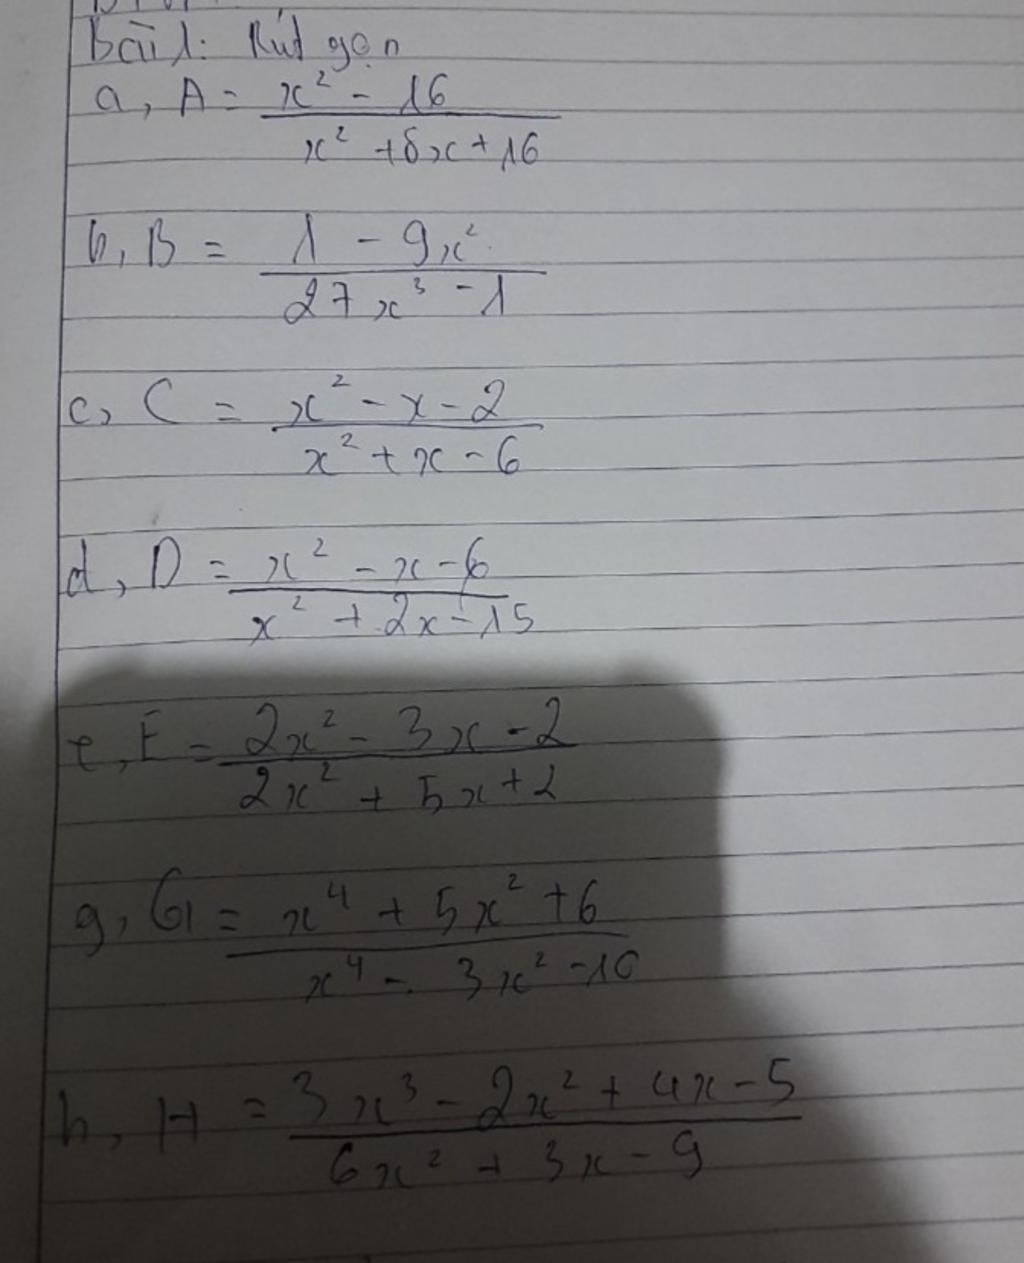 Bài 1: Rút gọn
a, A = x² - 16
x² + 8x + 16
b, B = 1 - 9x²
27x³ - 1
c, C = x² - x - 2
x² + x - 6
d, D = x² - x - 6
x² + 2x - 15
e, E = 2x² - 3x - 2
2x² + 5x + 2
g, G = x⁴ + 5x² + 6
x⁴ - 3x² - 10
h, H = 3x³ - 2x² + 4x - 5
6x² + 3x - 9